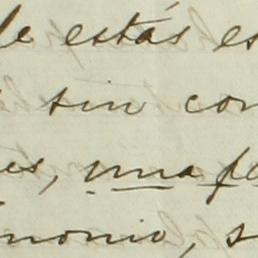 le estás es
sin con
es, una pe
monio, s